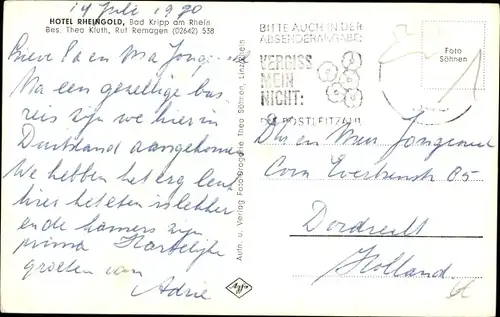 14 Juli 1970
HOTEL RHEINGOLD, Bad Kripp am Rhein
Bes. Theo Kluth, Ruf Remagen (02642) 538
Lieve Pa en Ma Jong
Na een gezellige bus
reis zyn we hier in
Duitsland aangekomen
We hebben het erg leuk
hier het eten is lekker
en de kamers zyn
prima Hartelyke
groeten van
Adrie
Aufn. u. Verlag Foto-Drogerie Theo Söhnen, Linz/Rhein
Agfa
BITTE AUCH IN DER
ABSENDERANGABE:
VERGISS
MEIN
NICHT:
DIE POSTLEITZAHL
Foto
Söhnen
en Mevr
Corn Evertsenstr 85
Dordrecht
Holland